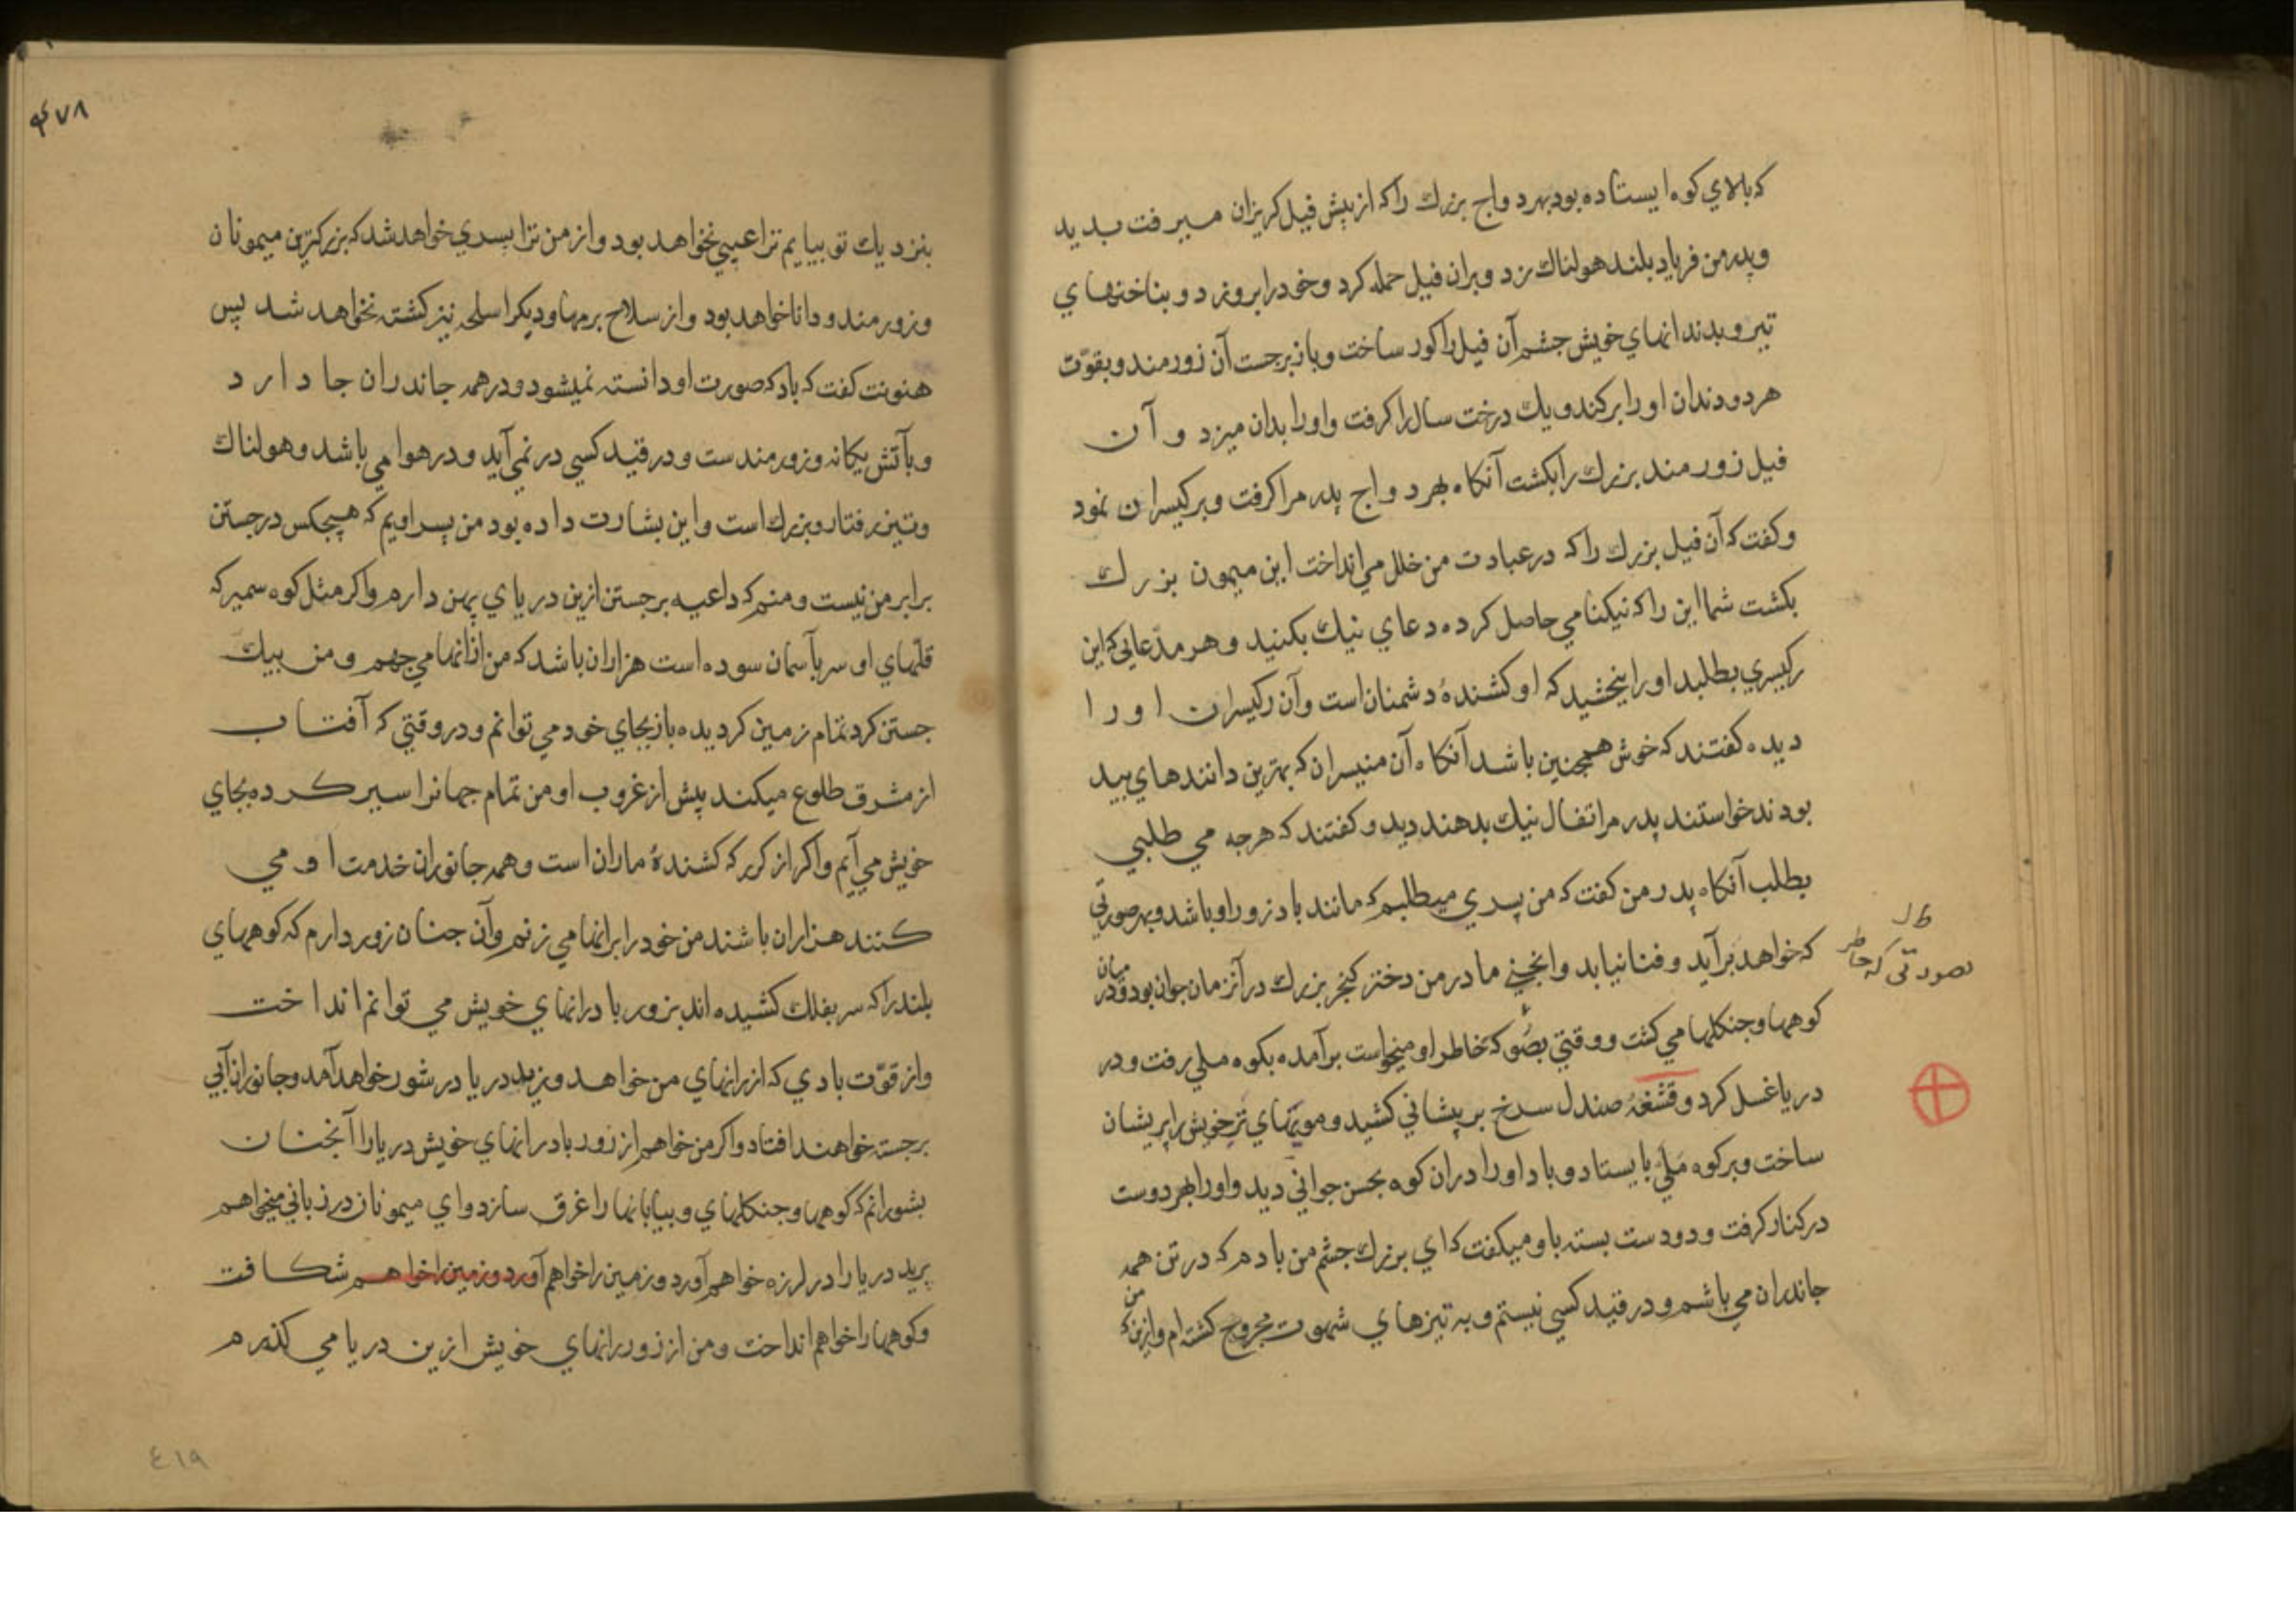 که بالاي کوه ایستاده بود بهرد واج بزرك راکه از پیش فیل کریزان میرفت بدید
وپدر من فریاد بلند هولناك زد وبران فیل حمله کرد وخودرا بروزد وبناخنهاي
تیز وبدندانهاي خویش چشم آن فیل را کور ساخت وباز برجست آن زورمند وبقوّت
هردو دندان اورا برکند ویك درخت سال را کرفت واورا بدان میزد و آن
فیل زورمند بزرك را بکشت آنکاه بهرد واج پدر مرا کرفت وبر رکیسران نمود
وکفت که آن فیل بزرك راکه درعبادت من خلل می انداخت این میمون بزرك
بکشت شما این راکه نیکنامي حاصل کرده دعاي نیك بکنید وهر مدّعایی که این
رکیسري بطلبد اورا ببخشید که او کشندهٔ دشمنان است وآن رکیسران اورا
دیده کفتند که خوش همچنین باشد آنکاه آن منیسران که بهترین دانندهاي بید
بودند خواستند پدر مرا تفال نیك بدهند دید وکفتند که هرچه مي طلبي
بطلب آنکاه پدر من کفت که من پسري میطلبم که مانند باد زور اوباشد وبهر صورتي
که خواهد برآید وفنا نیابد وانجني مادر من دختر کنجر بزرك درآنزمان جوان بود ودر
میان
کوهها وجنکلها مي کشت ووقتي بصو که بخاطر او میخواست برآمده بکوه ملي رفت ودر
بصورتی که خاطر
دریا غسل کرد وقشغهٔ صندل سرخ بر پیشاني کشید ومویهاي تر خویش را پریشان
ساخت وبرکوه مَلي بایستاد وباد اورا دران کوه بحسن جواني دید واورا بهردو دست
درکنار کرفت ودودست بسته باو میکفت که اي بزرك چشم من بادم که در تن همه
جانداران مي باشم ودر قید کسي نیستم وبه تیرهاي شهوت مجروح کشته ام وازین که
من
۴۷۸
بنزدیك تو بیایم ترا عیبي نخواهد بود واز من ترا پسري خواهد شد که بزرکترین میمونان
وزورمند ودانا خواهد بود واز سلاح برمها ودیکر اسلحه نیز کشته نخواهد شد پس
هنونت کفت که باد که صورت او دانسته نمیشود ودر همه جانداران جا دارد
وبآتش یکانه وزورمندست ودر قید کسي در نمي آید ودر هوا مي باشد وهولناك
وتیز رفتار وبزرك است واین بشارت داده بود من پسر اویم که هیچکس در جستن
برابر من نیست ومنم که داعیه برجستن ازین دریاي پهن دارم واکر مثل کوه سمیر که
قلّهاي او سر بآسمان سوده است هزاران باشد که من ازانها مي جهم ومن بیك
جستن کرد تمام زمین کردیده باز بجاي خود مي توانم ودر وقتي که آفتاب
از مشرق طلوع میکند پیش از غروب او من تمام جهانرا سیر کرده بجاي
خویش مي آیم واکر از کرر که کشندهٔ ماران است وهمه جانوران خدمت او مي
کنند هزاران باشند من خودرا برانها مي زنم وآن چنان زور دارم که کوههاي
بلند راکه سر بفلك کشیده اند بزور باد رانهاي خویش مي توانم انداخت
واز قوّت بادي که از رانهاي من خواهد وزید دریا در شور خواهد آمد وجانوران آبي
برجسته خواهند افتاد واکر من خواهم از زور باد رانهاي خویش دریا را آنچنان
بشورانم که کوهها وجنکلهاي وبیابانها را غرق سازد واي میمونان در زباني میخواهم
پرید دریا را در لرزه خواهم آورد وزمین را خواهم آورد وزمین را خواهم شکافت
وکوهها را خواهم انداخت ومن از زور رانهاي خویش ازین دریا مي کذرم
٤١٩